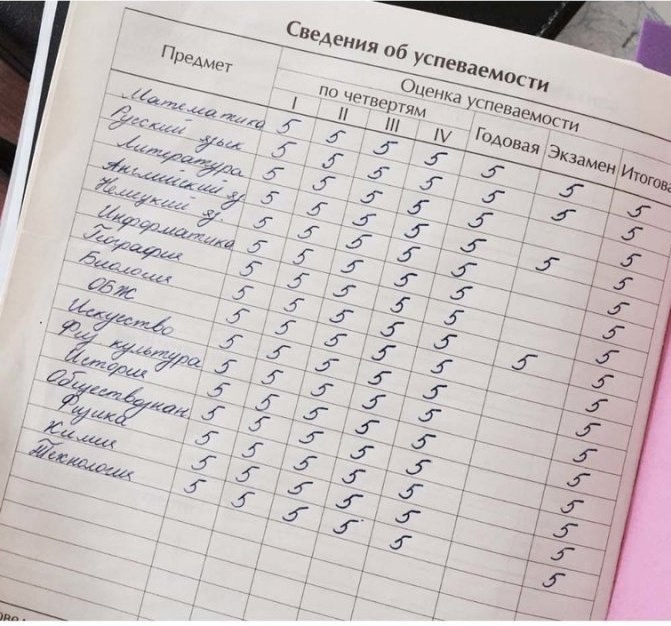 Сведения об успеваемости
Предмет
Оценка успеваемости
по четвертям
I II III IV Годовая Экзамен Итогова
Математика 5 5 5 5 5 5 5
Русский язык 5 5 5 5 5 5 5
Литература 5 5 5 5 5 5
Английский яз 5 5 5 5 5 5 5
Немецкий яз 5 5 5 5 5 5
Информатика 5 5 5 5 5 5
География 5 5 5 5 5 5
Биология 5 5 5 5 5 5 5
ОБЖ 5 5 5 5 5 5
Искусство 5 5 5 5 5 5
Физ культура 5 5 5 5 5 5
История 5 5 5 5 5 5
Обществознан 5 5 5 5 5 5
Физика 5 5 5 5 5 5
Химия 5 5 5 5 5 5
Технология 5 5 5 5 5 5